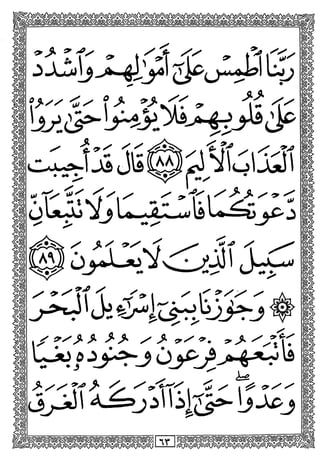 رَبَّنَا ٱطۡمِسۡ عَلَىٰٓ أَمۡوَٰلِهِمۡ وَٱشۡدُدۡ
عَلَىٰ قُلُوبِهِمۡ فَلَا يُؤۡمِنُوا۟ حَتَّىٰ يَرَوُا۟
ٱلۡعَذَابَ ٱلۡأَلِيمَ ٨٨ قَالَ قَدۡ أُجِيبَت
دَّعۡوَتُكُمَا فَٱسۡتَقِيمَا وَلَا تَتَّبِعَآنِّ
سَبِيلَ ٱلَّذِينَ لَا يَعۡلَمُونَ ٨٩
۞ وَجَٰوَزۡنَا بِبَنِىٓ إِسۡرَٰٓءِيلَ ٱلۡبَحۡرَ
فَأَتۡبَعَهُمۡ فِرۡعَوۡنُ وَجُنُودُهُۥ بَغۡيًا
وَعَدۡوًاۖ حَتَّىٰٓ إِذَآ أَدۡرَكَهُ ٱلۡغَرَقُ
٦٣